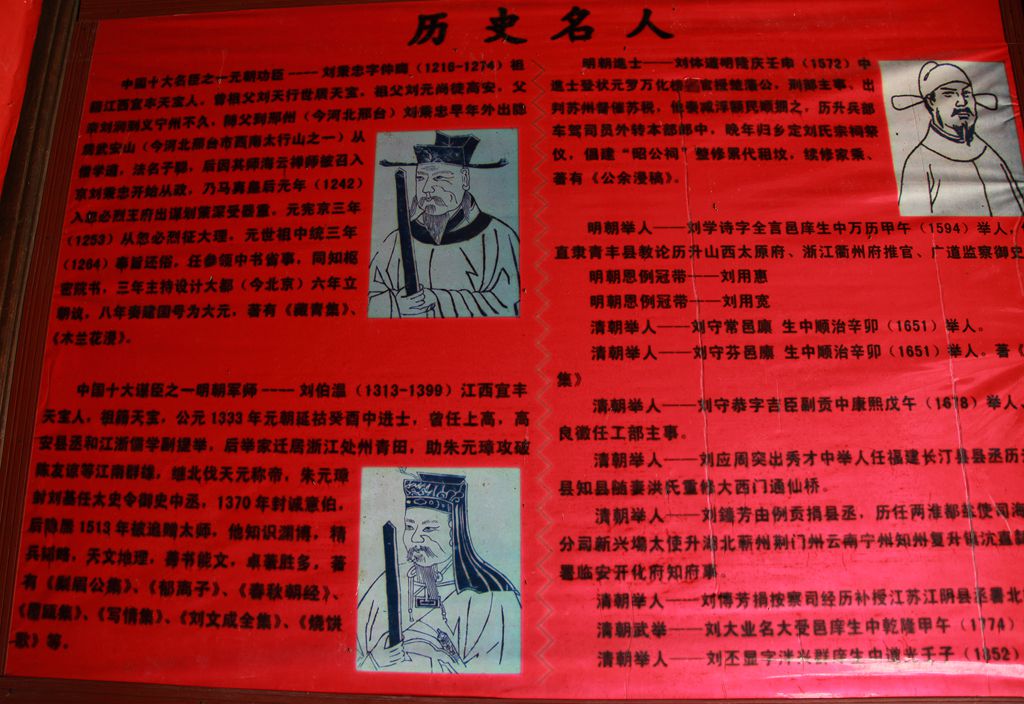 历史名人
中国十大名臣之一元朝功臣 —— 刘秉忠字仲晦（1216-1274）祖
籍江西宜丰天宝人，曾祖父刘天行世居天宝，祖父刘元尚徙高安，父
亲刘润到 宁州不久， 父到邢州（今河北邢台）刘秉忠早年外出
武安山（今河北邢台市西南太行山之一）从
僧学道，法名子聪，后因兵师海云禅师被召入
京刘秉忠开始从政，乃马真皇后元年（1242）
入忽必烈王府出谋划策深受器重，元宪宗三年
（1253）从忽必烈征大理，元世祖中统三年
（1264）奉旨还俗，任参领中书省事，同知枢
密院书，三年主持设计大都（今北京）六年立
朝仪，八年奏建国号为大元，著有《藏青集》、
《木兰花漫》。
中国十大谋臣之一明朝军师 —— 刘伯温（1313-1399）江西宜丰
天宝人，祖籍天宝，公元1333年元朝延祜癸酉中进士，曾任上高，高
安县丞和江浙儒学副提举，后举家迁居浙江处州青田，助朱元璋攻破
陈友谅等江南群雄，继北伐天元称帝，朱元璋
封刘基任太史令御史中丞，1370年封诚意伯，
后隐居1513年被追赠太师，他知识渊博，精
兵韬略，天文地理，善书能文，卓著胜多，著
有《犁眉公集》、《郁离子》、《春秋朝经》、
《覆瓿集》、《写情集》、《刘文成全集》、《烧饼
歌》等。
明朝进士——刘体道明隆庆壬申（1572）中
进士登状元罗万化榜，官授楚蒲公，刑部主事、出
判苏州督催苏税，他裁减浮额民顺拥之，历升兵部
车驾司员外转本部郎中，晚年归乡定刘氏宗祠祭
仪，倡建“昭公祠”整修累代祖坟，续修家乘、
著有《公余漫稿》。
明朝举人——刘学诗字全言邑庠生中万历甲午（1594）举人，
直隶青丰县教论历升山西太原府、浙江衢州府推官、广道监察御史
明朝恩例冠带——刘用惠
明朝恩例冠带——刘用宽
清朝举人——刘守常邑廪 生中顺治辛卯（1651）举人。
清朝举人——刘守芬邑廪 生中顺治辛卯（1651）举人。著《
集》
清朝举人——刘守恭字吉臣副贡中康熙戊午（1678）举人
良徵任工部主事。
清朝举人——刘应周突出秀才中举人任福建长汀县县丞历
县知县随妻洪氏重修大西门通仙桥。
清朝举人——刘鐈芳由例贡捐县丞，历任两淮都盐使司海
分司新兴场太使升湖北蕲州荆门州云南宁州知州复升镇沅直
署临安开化府知府事。
清朝举人——刘博芳捐按察司经历补授江苏江阴县丞署北
清朝武举——刘大业名大受邑庠生中乾隆甲午（1774）
清朝举人——刘丕显字泮兴群庠生中道光壬子（1852）